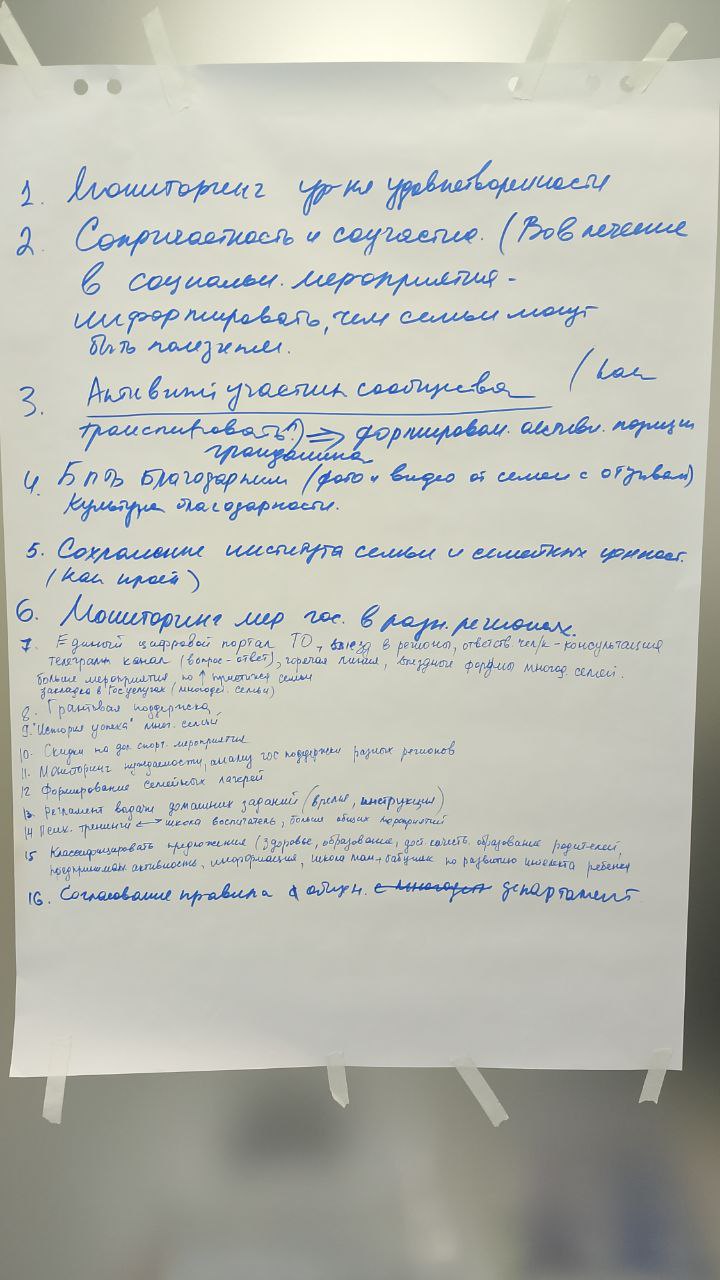 1. Мониторинг ур-ня удовлетворенности
2. Сопричастность и соучастие. (Вовлечение
в социальн. мероприятия -
информировать, чем семьи могут
быть полезными.
3. Активный участник сообщества (как
транслировать?) => формирован. активн. позиции
гражданина
4. Быть благодарным (фото и видео от семей с отзывам)
Культура благодарности.
5. Сохранение института семьи и семейных ценност.
(как проект)
6. Мониторинг мер гос. в разн. регионах.
7. Единый цифровой портал ТО, выезд в регионы, ответств. чел/к - консультация
телеграмм канал (вопрос-ответ), горячая линия, выездные форумы многод. семей.
больше мероприятия, но ↑ семьи
закладка в Госуслугах (многодет. семьи)
8. Грантовая поддержка
9. "История успеха" мног. семьи
10. Скидки на доп. спорт. мероприятия
11. Мониторинг нуждаемости, анализ гос поддержки разных регионов
12 Формирование семейных лагерей
13. Регламент выдачи домашних заданий (время, инструкции)
14 Псих. тренинги <-> школа воспитатель, больше общих мероприятий
15 Классифицировать предложения (здоровье, образование, образование родителей,
активность, информация, школа мам, бабушек по развитию ребенка
16. Согласование правила департамент